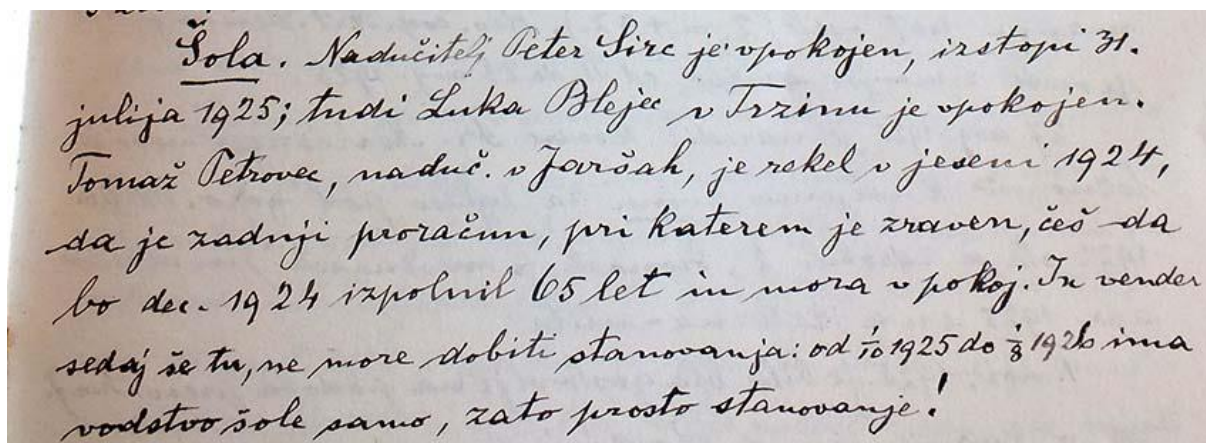 Šola. Nadučitelj Peter Sirc je vpokojen, izstopi 31.
julija 1925; tudi Luka Blejec v Trzinu je vpokojen.
Tomaž Petrovec, naduč. v Jaršah, je rekel v jeseni 1924,
da je zadnji proračun, pri katerem je zraven, češ da
bo dec. 1924 izpolnil 65 let in mora v pokoj. In vender
sedaj še tu, ne more dobiti stanovanja: od 1/10 1925 do 1/8 1926 ima
vodstvo šole samo, zato prosto stanovanje!